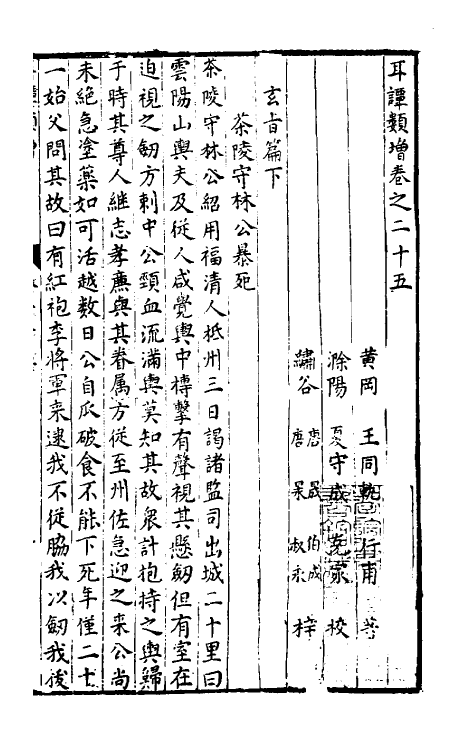 耳譚類增卷之二十五
黃岡 王同軌行甫 著
滁陽 夏守成克家 校
繡谷 唐晟伯成 唐杲叔永 梓
玄旨篇下
茶陵守林公暴死
茶陵守林公紹用福清人柢州三日謁諸監司出城二十里曰
雲陽山輿夫及從人咸覺輿中搏擊有聲視其懸劒但有室在
迫視之劒方刺中公頸血流滿輿莫知其故衆計抱持之輿歸
于時其尊人維志孝廉與其眷属方從至州佐急迎之来公尚
未絕急塗藥如可活越数日公自瓜破食不能下死年僅二十
一始父問其故曰有紅袍李將軍来逮我不從脇我以劒我後